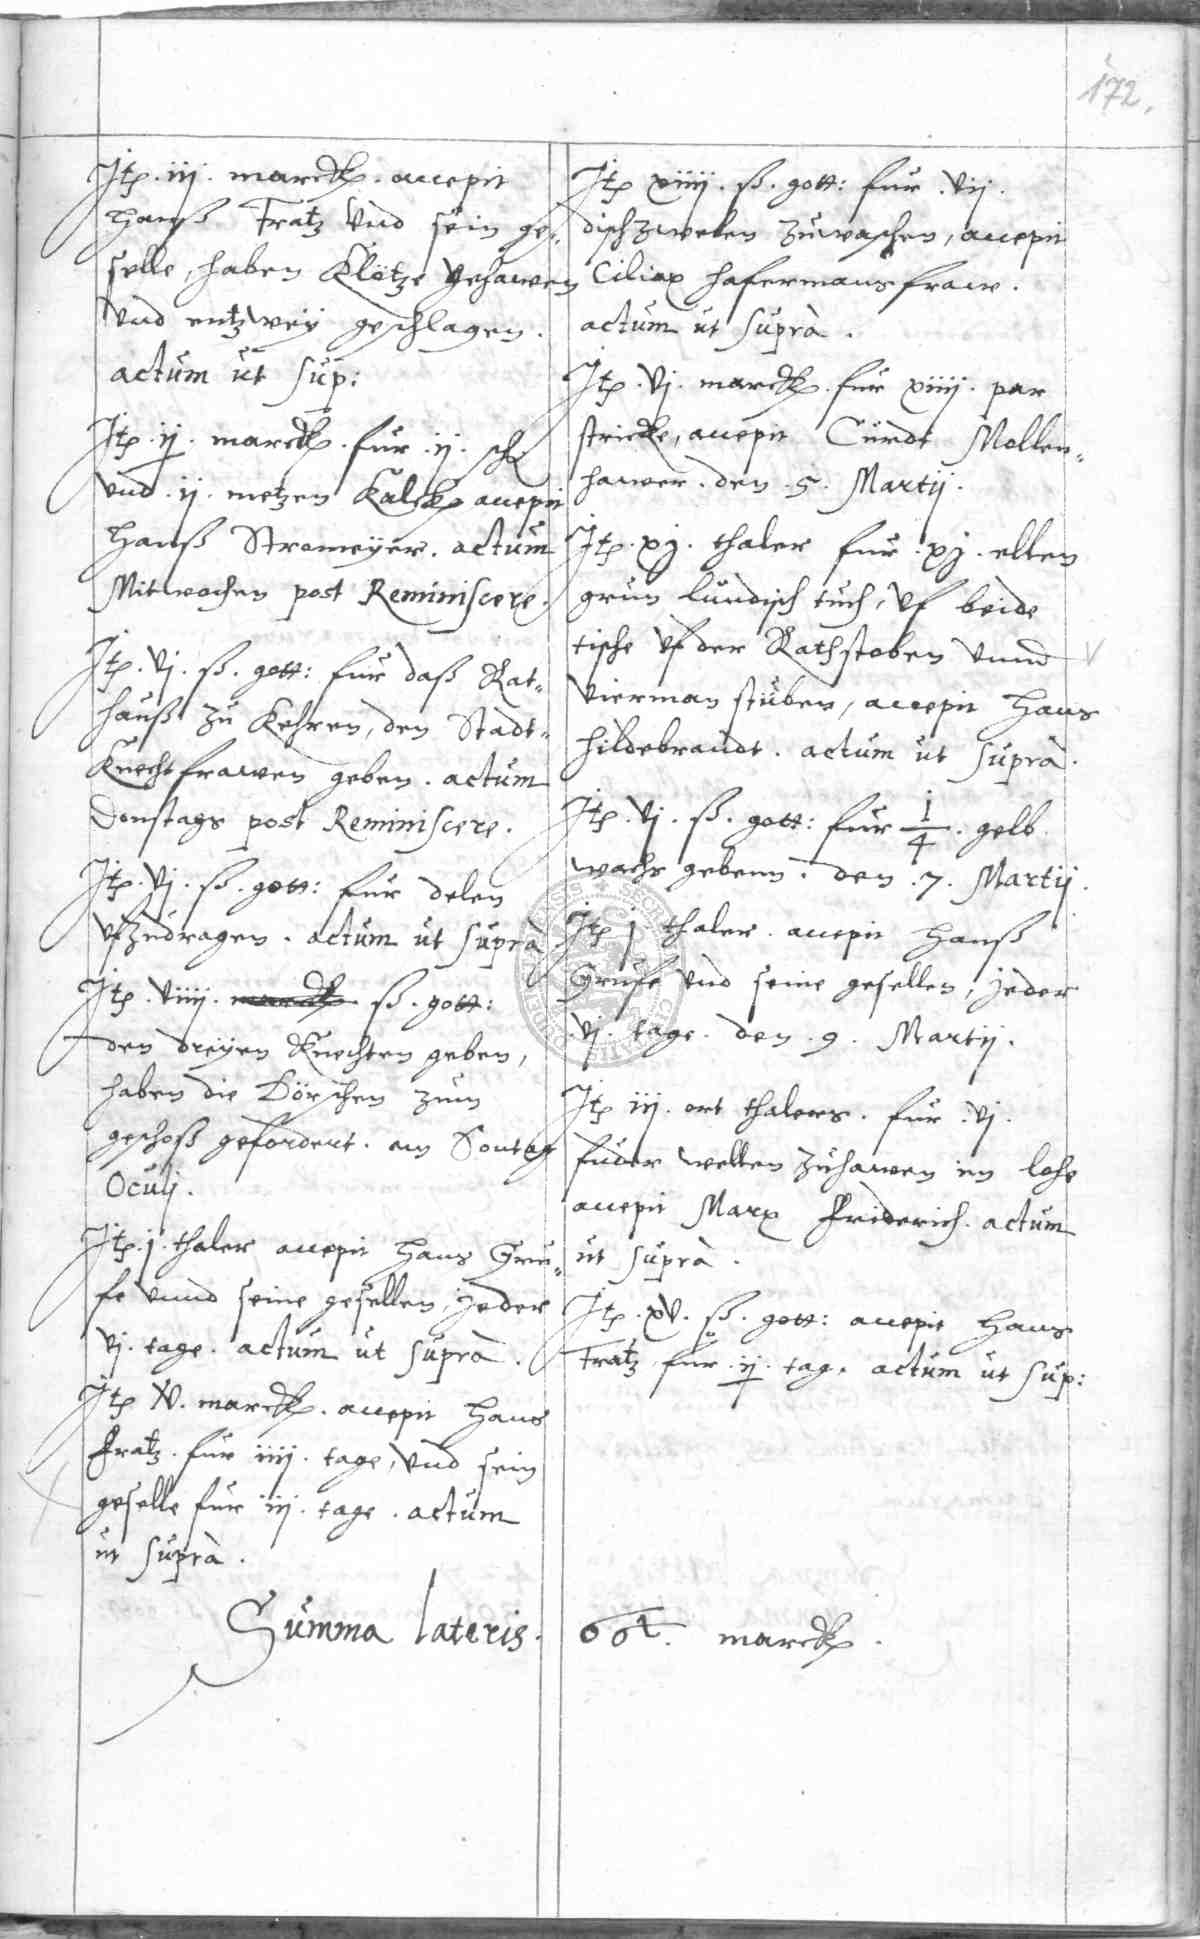 172.
Itp. iij. marck. accepit
Hanß Fratz vnd sein ge-
selle, haben Klötze gehawen
vnd entzwey geschlagen.
actum ut sup:
Itp. ij. marck. fur. ij. sch
vnd. ij. metzen Kalck accepit
Hanß Stromeyer. actum
Mitwochen post Reminiscere.
Itp. vj. ß. gott: fur daß Rat-
hauß zu Kehren, den Stadt-
Knecht frawen geben. actum
Donstags post Reminiscere.
Itp. vj. ß. gott: fur delen
vfzudragen. actum ut suprà
Itp. viiij. marck ß. gott:
den dreyen Knechten geben,
haben die Dörschen zum
geschoß gefordert. am Sontag
Oculj.
Itp. j. thaler accepit Hans Gru-
fe vnnd seine gesellen, jeder
vj. tage. actum ut suprà.
Itp. v. marck. accepit Hans
Fratz. fur iiij. tage, vnd sein
geselle fur iij. tage. actum
ut suprà.
Itp xiiij. ß. gott: fur. vij.
dischzwelen zuwaschen, accepit
Ciliax Hafermans fraw.
actum ut suprà.
Itp. vj. marck. fur xiiij. par
stricke, accepit Curdt Mollen-
hawer. den. 5. Martij.
Itp. xj. thaler fur. xj. ellen
grun lundisch tuch, vf beide
tische vf der Rathstoben vnnd
vierman stuben, accepit Hans
Hildebrandt. actum ut suprà.
Itp. vj. ß. gott: fur 1/4. gelb
wachs gebenn. den. 7. Martij.
Itp j thaler. accepit Hanß
Grufe vnd seine gesellen, jeder
vj. tage. den. 9. Martij.
Itp iij. ort thalers. fur. vj.
fuder wellen zuhawen im lohe
accepit Marx Friderich. actum
ut suprà.
Itp. xv. ß. gott: accepit Hans
Fratz fur. ij. tag. actum ut sup:
Summa lateris. marck.